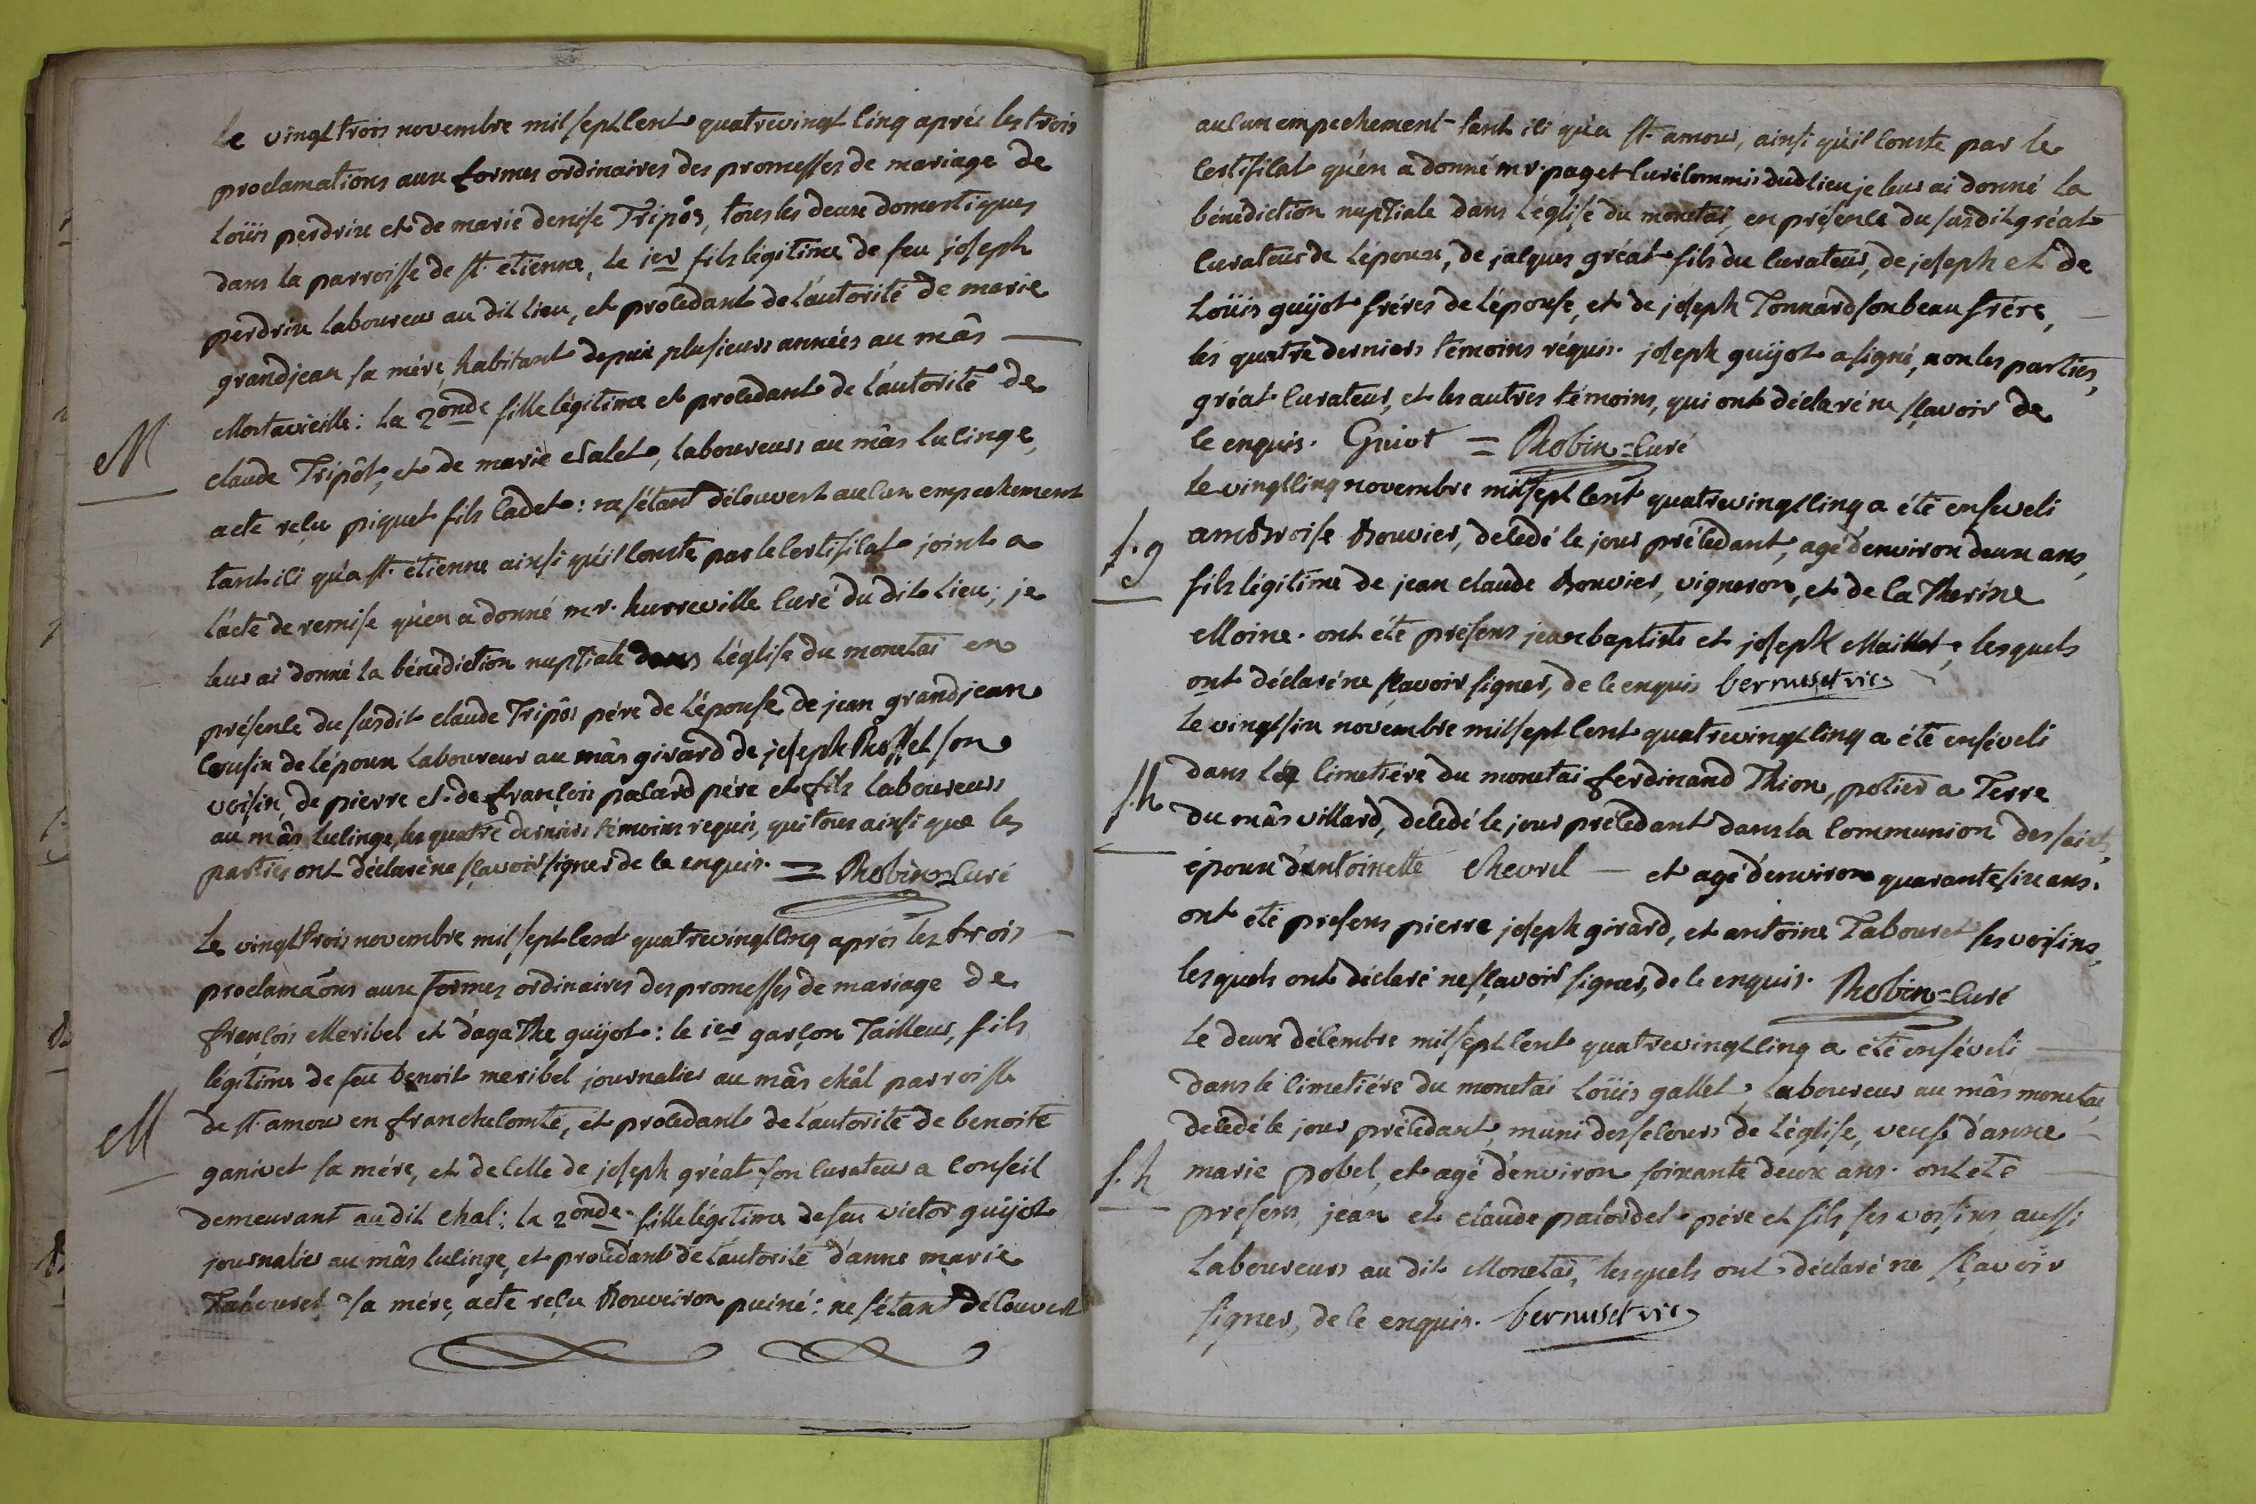 Le vingt trois novembre mil sept cent quatrevingt cinq aprés les trois
proclamations aux formes ordinaires des promesses de mariage de
Loüis perdrix et de marie denise Tripôs, tous les deux domestiques
dans la parroisse de st. etienne, le 1er fils légitime de feu joseph
perdrix laboureur au dit lieu, et procedant de l'autorité de marie
grandjean sa mére, habitant depuis plusieurs années au mâs
M
Mortavieille: la 2onde fille légitime et procedant de l'autorité de
claude Tripôt, et de marie Salet, laboureurs au mâs lulinge,
acte reçu piquet fils cadet: ne s'étant découvert aucun empechement
tant ici qu'a st. etienne ainsi qu'il conste par le certificat joint a
l'acte de remise qu'en a donné mr. hurreville curé du dit lieu; je
leur ai donné la bénédiction nuptiale dans l'église du monetai en
présence du susdit claude Tripôs pére de l'épouse de jean grandjean
cousin de l'époux laboureur au mâs girard de joseph Rosset son
voisin, de pierre et de françois pacard pére et fils laboureurs
au mâs lulinge, les quatre derniers témoins requis, qui tous ainsi que les
parties ont déclaré ne sçavoir signer de ce enquis. = Robin-curé
Le vingt trois novembre mil sept cent quatrevingt cinq aprés les trois
proclamaôns aux formes ordinaires des promesses de mariage de
françois Meribel et d'agaThe guijot: le 1er garçon Tailleur, fils
légitime de feu benoit meribel journalier au mâs chàl parroisse
M
de st. amour en franchecomté, et procedant de l'autorité de benoite
ganivet sa mére, et de celle de joseph gréat son curateur a conseil
demeurant au dit chal: la 2onde fille légitime de feu victor guijot
journalier au mâs lulinge, et procedant de l'autorité d'anne marie
Tabouret sa mére, acte reçu Rouveiron puiné: ne s'étant découvert
aucun empechement tant ici qu'a st. amour, ainsi qu'il conste par le
certificat qu'en a donné mr. paget curé commis dud lieu je leur ai donné la
bénédiction nuptiale dans l'église du monetai, en présence du susdit gréat
curateur de l'époux, de jacques gréat fils du curateur, de joseph et de
Loüis guijot fréres de l'épouse, et de joseph Tonnard son beau frére,
les quatre derniers témoins réquis. joseph guijot a signé, non les parties,
gréat curateur, et les autres témoins, qui ont déclaré ne sçavoir de
ce enquis. Guiot = Robin-curé
Le vingt cinq novembre mil sept cent quatrevingt cinq a été enseveli
s.g
ambroise Bouvier, decedé le jour précedant, agé d'environ deux ans,
fils légitime de jean claude Bouvier, vigneron, et de caTherine
Moine. ont été présens jean baptiste et joseph Maillet, lesquels
ont déclaré ne sçavoir signer, de ce enquis bernuset vic
Le vingt six novembre mil sept cent quatrevingt cinq a été enséveli
s.h
dans le cimetiére du monetai ferdinand Thion, potier a Terre
du mâs villard, decedé le jour précedant dans la communion des saints,
époux d'antoinette Chevrel — et agé d'environ quarante six ans.
ont été présens pierre joseph girard, et antoine Tabouret ses voisins,
lesquels ont déclaré ne sçavoir signer, de ce enquis. Robin-curé
Le deux décembre mil sept cent quatrevingt cinq a été enséveli
dans le cimetiére du monetai Loüis gallet, laboureur au mâs monetai
decedé le jour précedant, muni des secours de l'église, veuf d'anne
s.h
marie pobel, et agé d'environ soixante deux ans. ont été
présens jean et claude pacordet pére et fils ses voisins aussi
Laboureurs au dit Monetai, lesquels ont déclaré ne sçavoir
signer, de ce enquis. bernuset vic